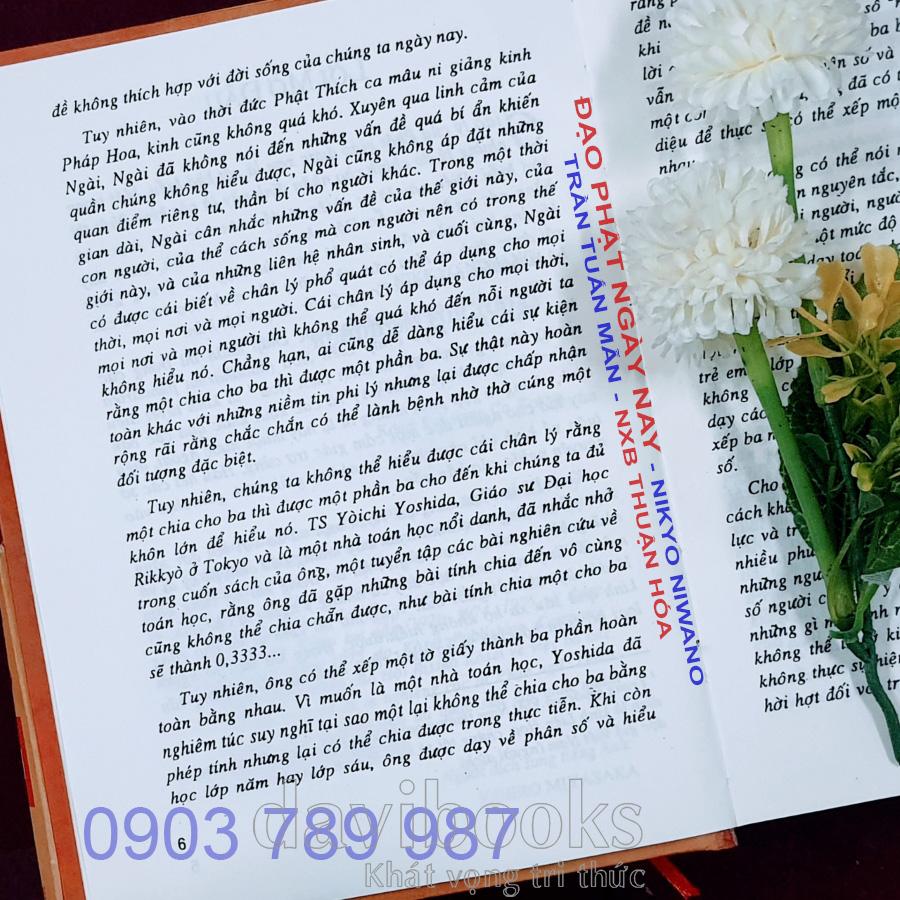 đề không thích hợp với đời sống của chúng ta ngày nay.
Tuy nhiên, vào thời đức Phật Thích ca mâu ni giảng kinh
Pháp Hoa, kinh cũng không quá khó. Xuyên qua linh cảm của
Ngài, Ngài đã không nói đến những vấn đề quá bí ẩn khiến
quần chúng không hiểu được, Ngài cũng không áp đặt những
quan điểm riêng tư, thần bí cho người khác. Trong một thời
gian dài, Ngài cân nhắc những vấn đề của thế giới này, của
con người, của thể cách sống mà con người nên có trong thế
giới này, và của những liên hệ nhân sinh, và cuối cùng, Ngài
có được cái biết về chân lý phổ quát có thể áp dụng cho mọi
thời, mọi nơi và mọi người. Cái chân lý áp dụng cho mọi thời,
mọi nơi và mọi người thì không thể quá khó đến nỗi người ta
không hiểu nó. Chẳng hạn, ai cũng dễ dàng hiểu cái sự kiện
rằng một chia cho ba thì được một phần ba. Sự thật này hoàn
toàn khác với những niềm tin phi lý nhưng lại được chấp nhận
rộng rãi rằng chắc chắn có thể lành bệnh nhờ thờ cúng một
đối tượng đặc biệt.
Tuy nhiên, chúng ta không thể hiểu được cái chân lý rằng
một chia cho ba thì được một phần ba cho đến khi chúng ta đủ
khôn lớn để hiểu nó. TS Yòichi Yoshida, Giáo sư Đại học
Rikkyò ở Tokyo và là một nhà toán học nổi danh, đã nhắc nhở
trong cuốn sách của ông, một tuyển tập các bài nghiên cứu về
toán học, rằng ông đã gặp những bài tính chia đến vô cùng
cũng không thể chia chẵn được, như bài tính chia một cho ba
sẽ thành 0,3333...
Tuy nhiên, ông có thể xếp một tờ giấy thành ba phần hoàn
toàn bằng nhau. Vì muốn là một nhà toán học, Yoshida đã
nghiêm túc suy nghĩ tại sao một lại không thể chia cho ba bằng
phép tính nhưng lại có thể chia được trong thực tiễn. Khi còn
học lớp năm hay lớp sáu, ông được dạy về phân số và hiểu
6
ĐẠO PHẬT NGÀY NAY - NIKYO NIWANO
TRẦN TUẤN MẪN - NXB THUẬN HÓA
đề
khi
lời
vẫn
một
diệu để thực
có thể xếp
có thể nói
nguyên tắc,
người, người
một mức độ
trẻ em
lớp
không
dạy các
xếp ba
số.
Cho
cách
lực và
nhiều
những
số người
những gì
không thể
không thực sự
hời hợt đối với
0903 789 987
davibooks
Khát vọng tri thức